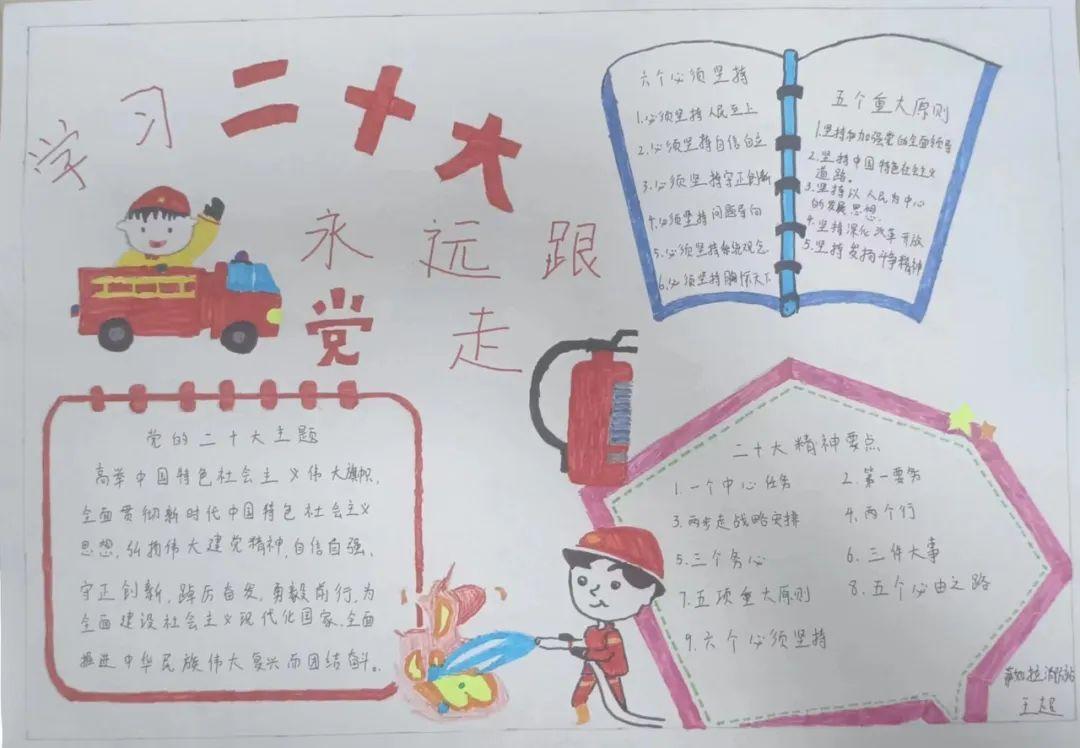 学习二十大
永远跟
党走
六个必须坚持
1.必须坚持人民至上
2.必须坚持自信自立
3.必须坚持守正创新
4.必须坚持问题导向
5.必须坚持系统观念
6.必须坚持胸怀天下
五个重大原则
1.坚持和加强党的全面领导
2.坚持中国特色社会主义
道路。
3.坚持以人民为中心
的发展思想.
4.坚持深化改革开放
5.坚持发扬斗争精神
党的二十大主题
高举中国特色社会主义伟大旗帜,
全面贯彻新时代中国特色社会主义
思想,弘扬伟大建党精神,自信自强、
守正创新,踔厉奋发、勇毅前行,为
全面建设社会主义现代化国家、全面
推进中华民族伟大复兴而团结奋斗。
二十大精神要点
1.一个中心任务
2.第一要务
3.两步走战略安排
4.两个行
5.三个务必
6.三件大事
7.五项重大原则
8.五个必由之路
9.六个必须坚持
拉消防站
王超